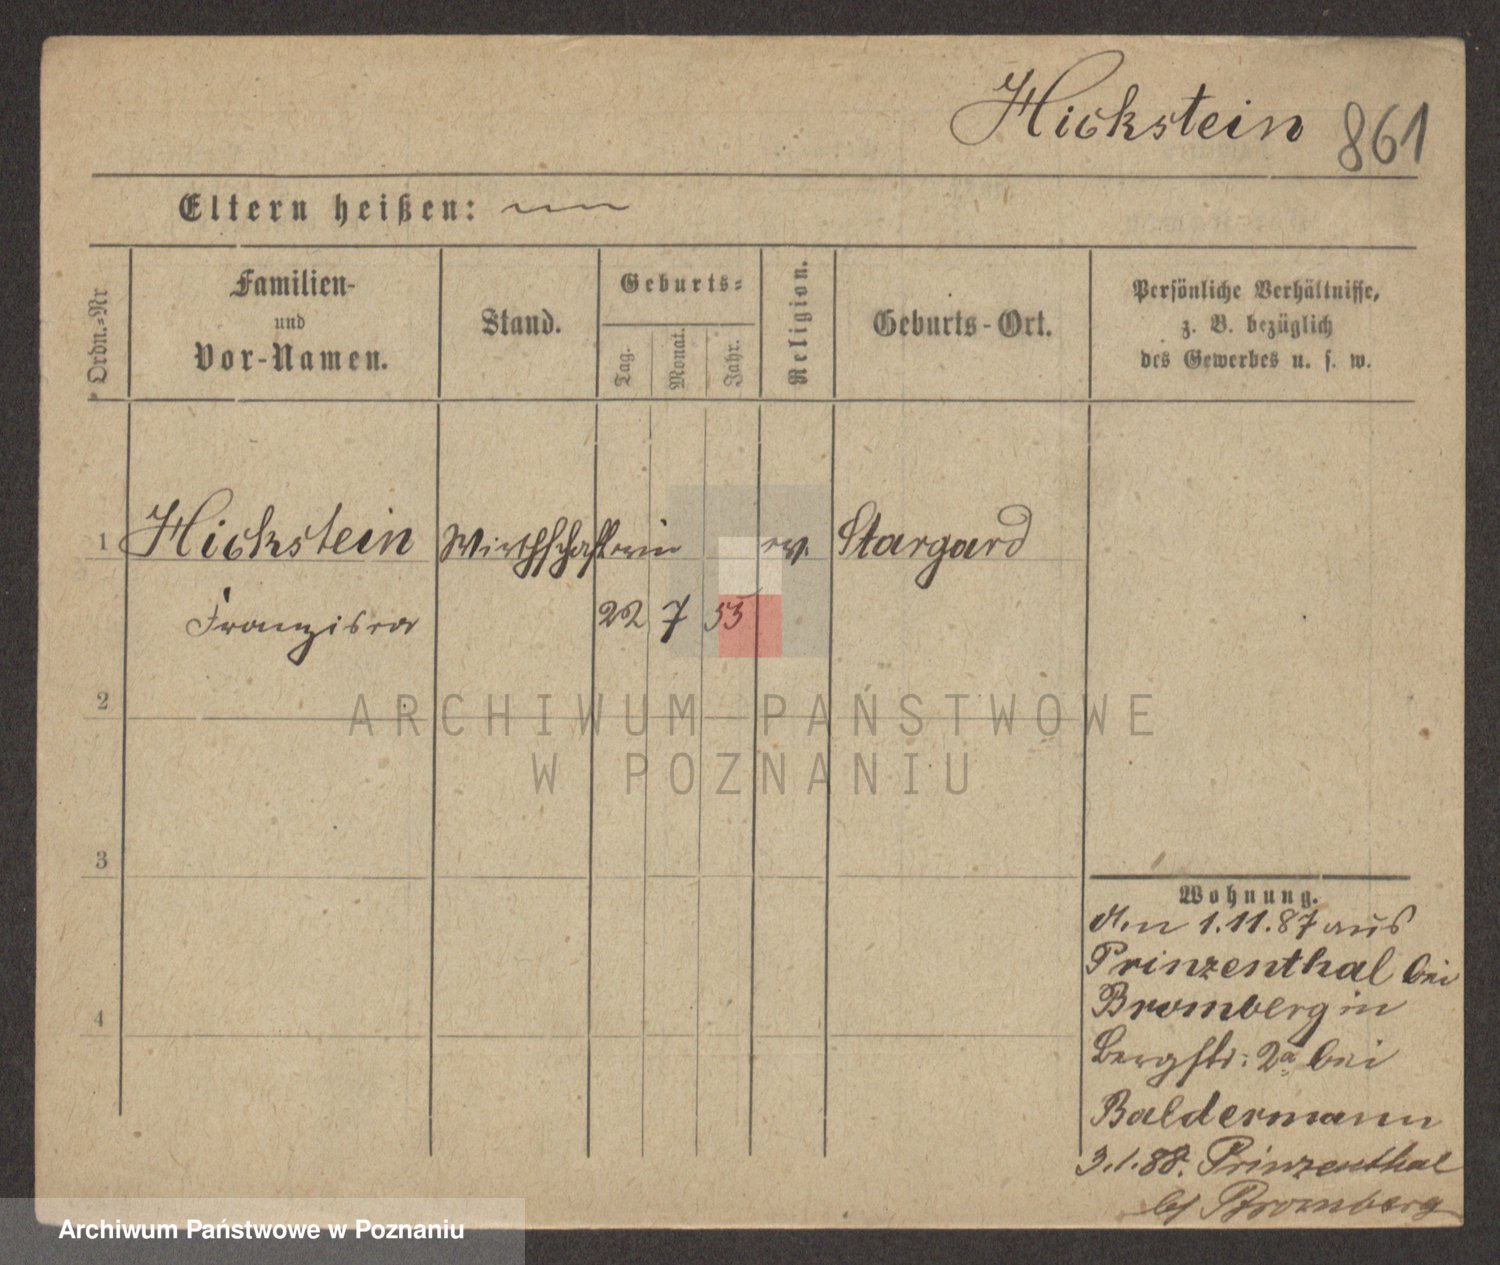 Hickstein 861
Eltern heißen:
Ordn.-Nr
Familien-
und
Vor-Namen.
Stand.
Geburts-
Tag.
Monat.
Jahr.
Religion.
Geburts-Ort.
Persönliche Verhältnisse,
z. B. bezüglich
des Gewerbes u. s. w.
1 Hickstein Wirthschafterin ev. Stargard
Franziska 22 7 55
2
3
4
Wohnung.
1.11.87 aus
Prinzenthal bei
Bromberg in
Bergstr: 2a bei
Baldermann
3.1.88. Prinzenthal
b/ Bromberg
ARCHIWUM PAŃSTWOWE
W POZNANIU
Archiwum Państwowe w Poznaniu